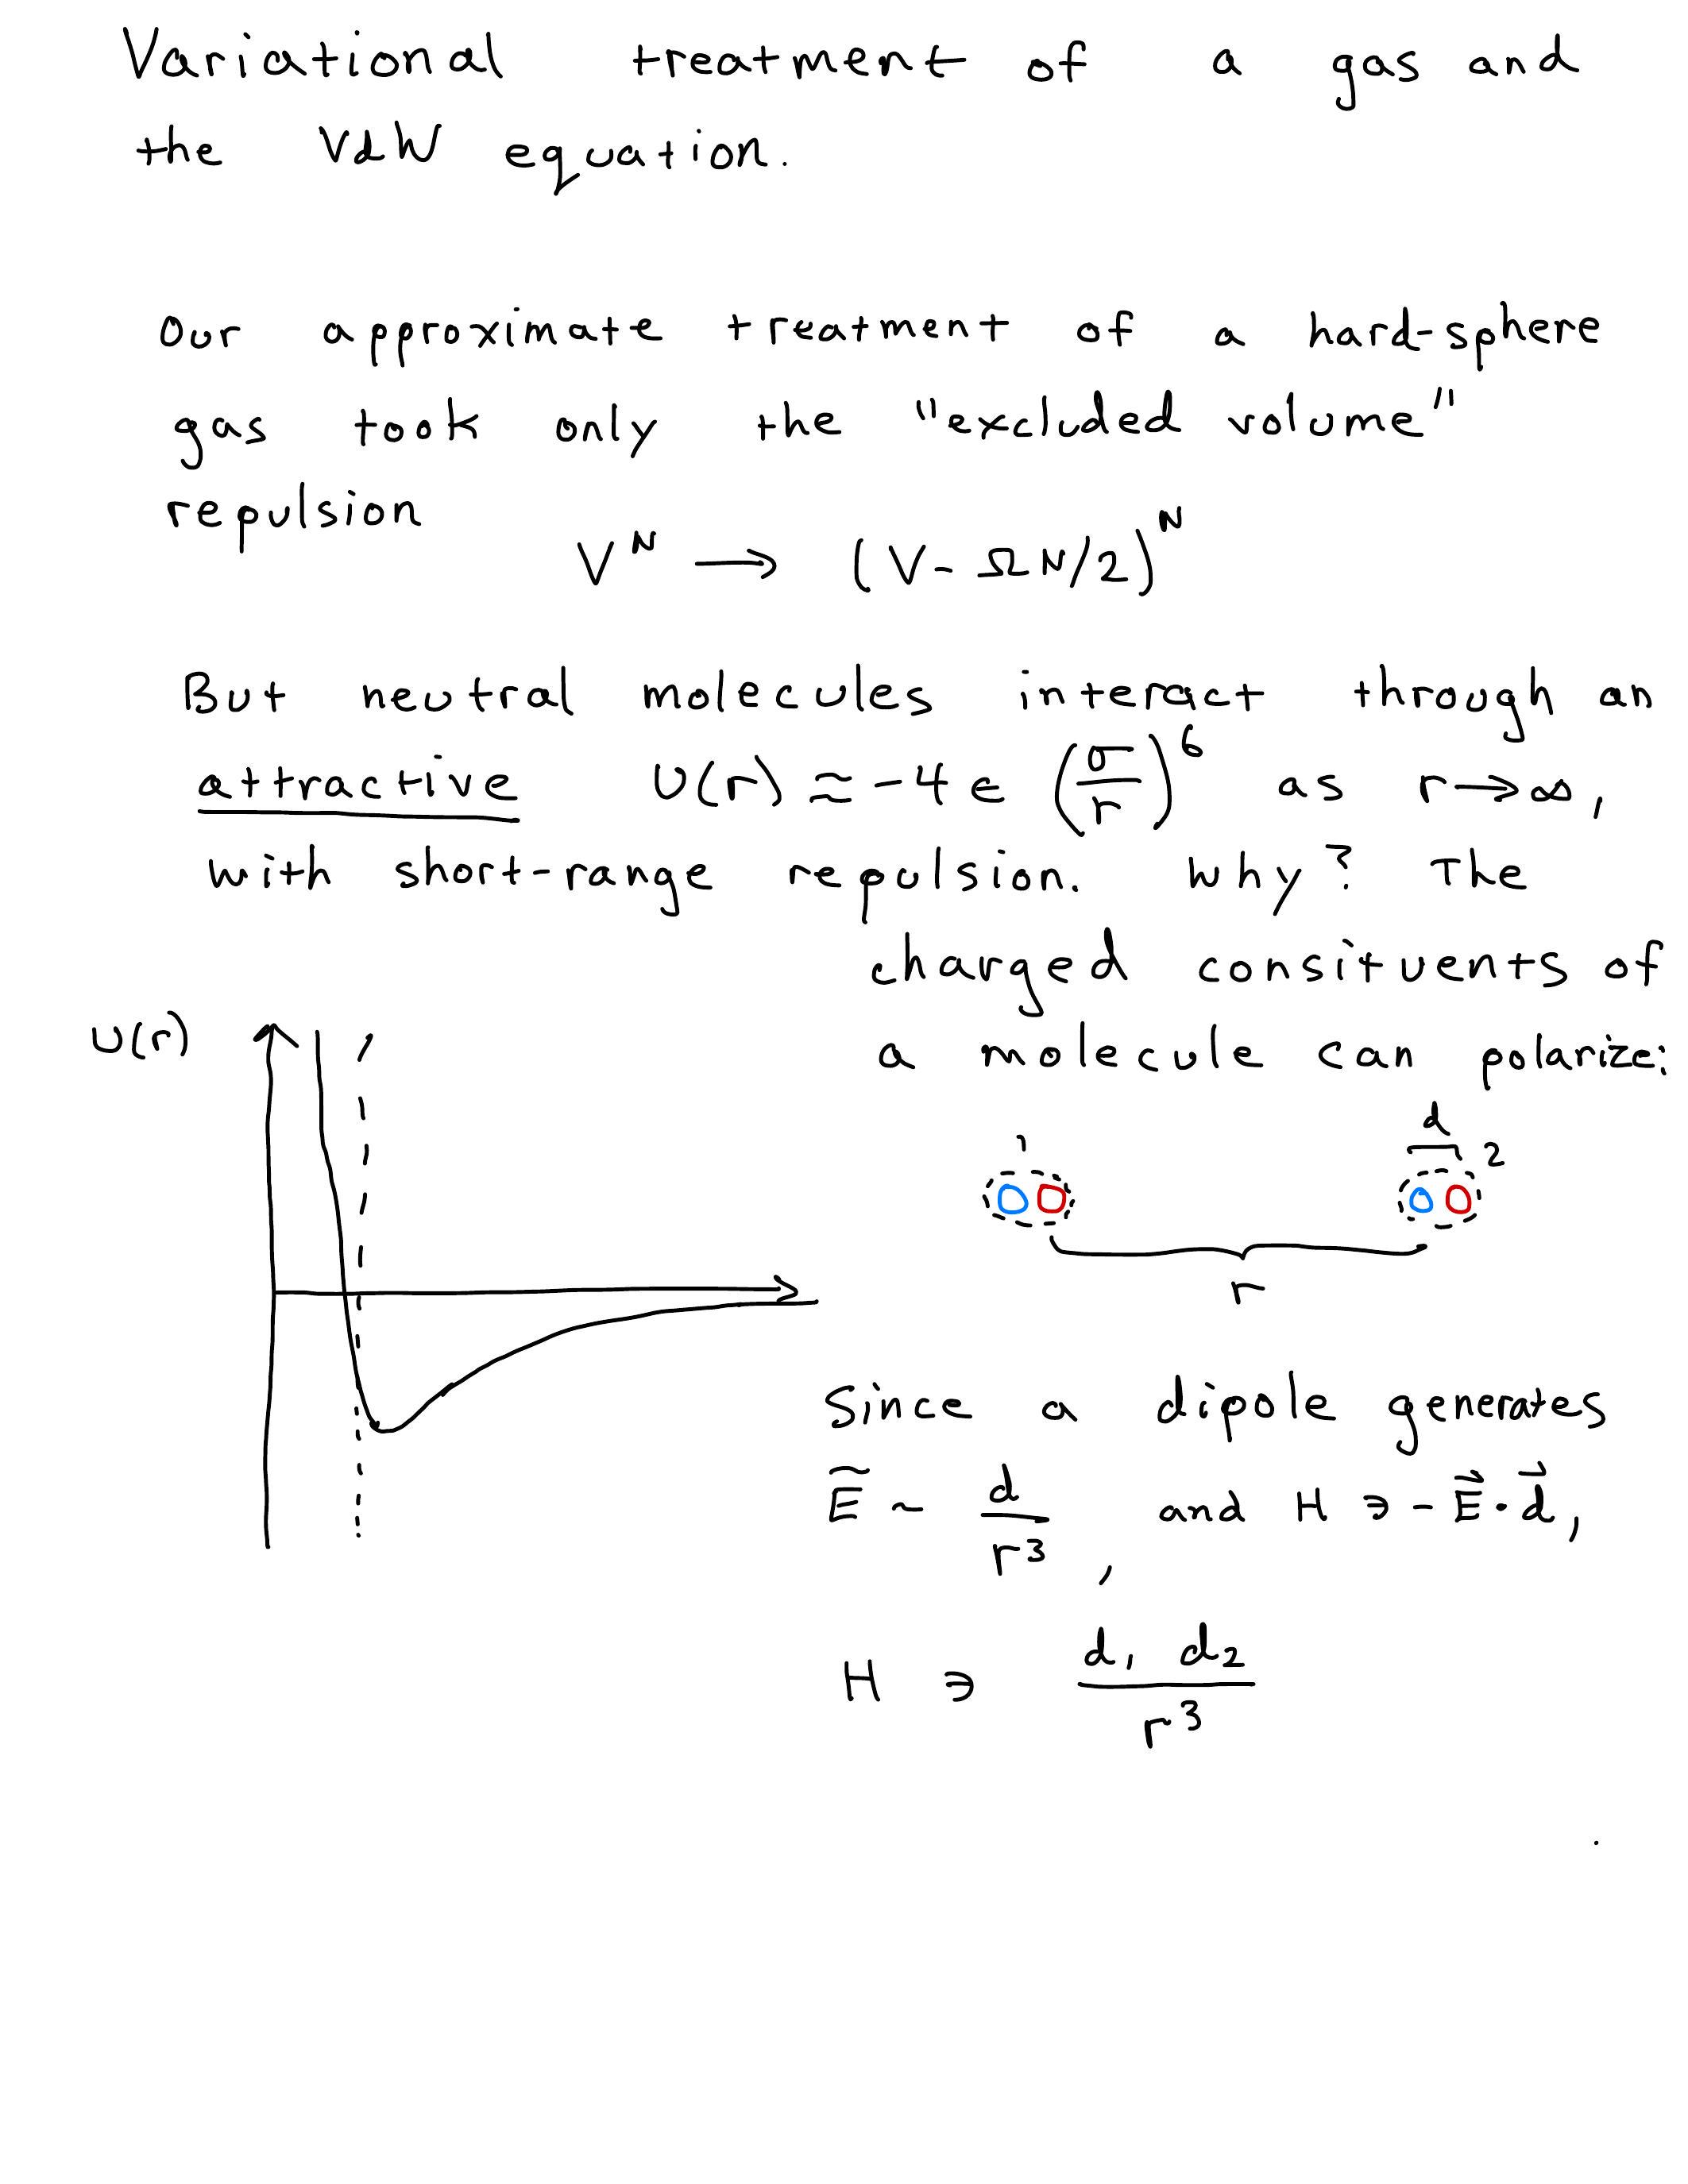 Variational treatment of a gas and
the VdW equation.
Our approximate treatment of a hard-sphere
gas took only the "excluded volume"
repulsion
V^N ⟶ (V - ΩN/2)^N
But neutral molecules interact through an
attractive U(r) ≈ -4ϵ (σ/r)^6 as r→∞,
with short-range repulsion. Why? The
charged consituents of
a molecule can polarize:
U(r)
d
1 2
r
Since a dipole generates
E ~ d/r^3, and H ∋ -E⃗·d⃗,
H ∋ d_1 d_2/r^3